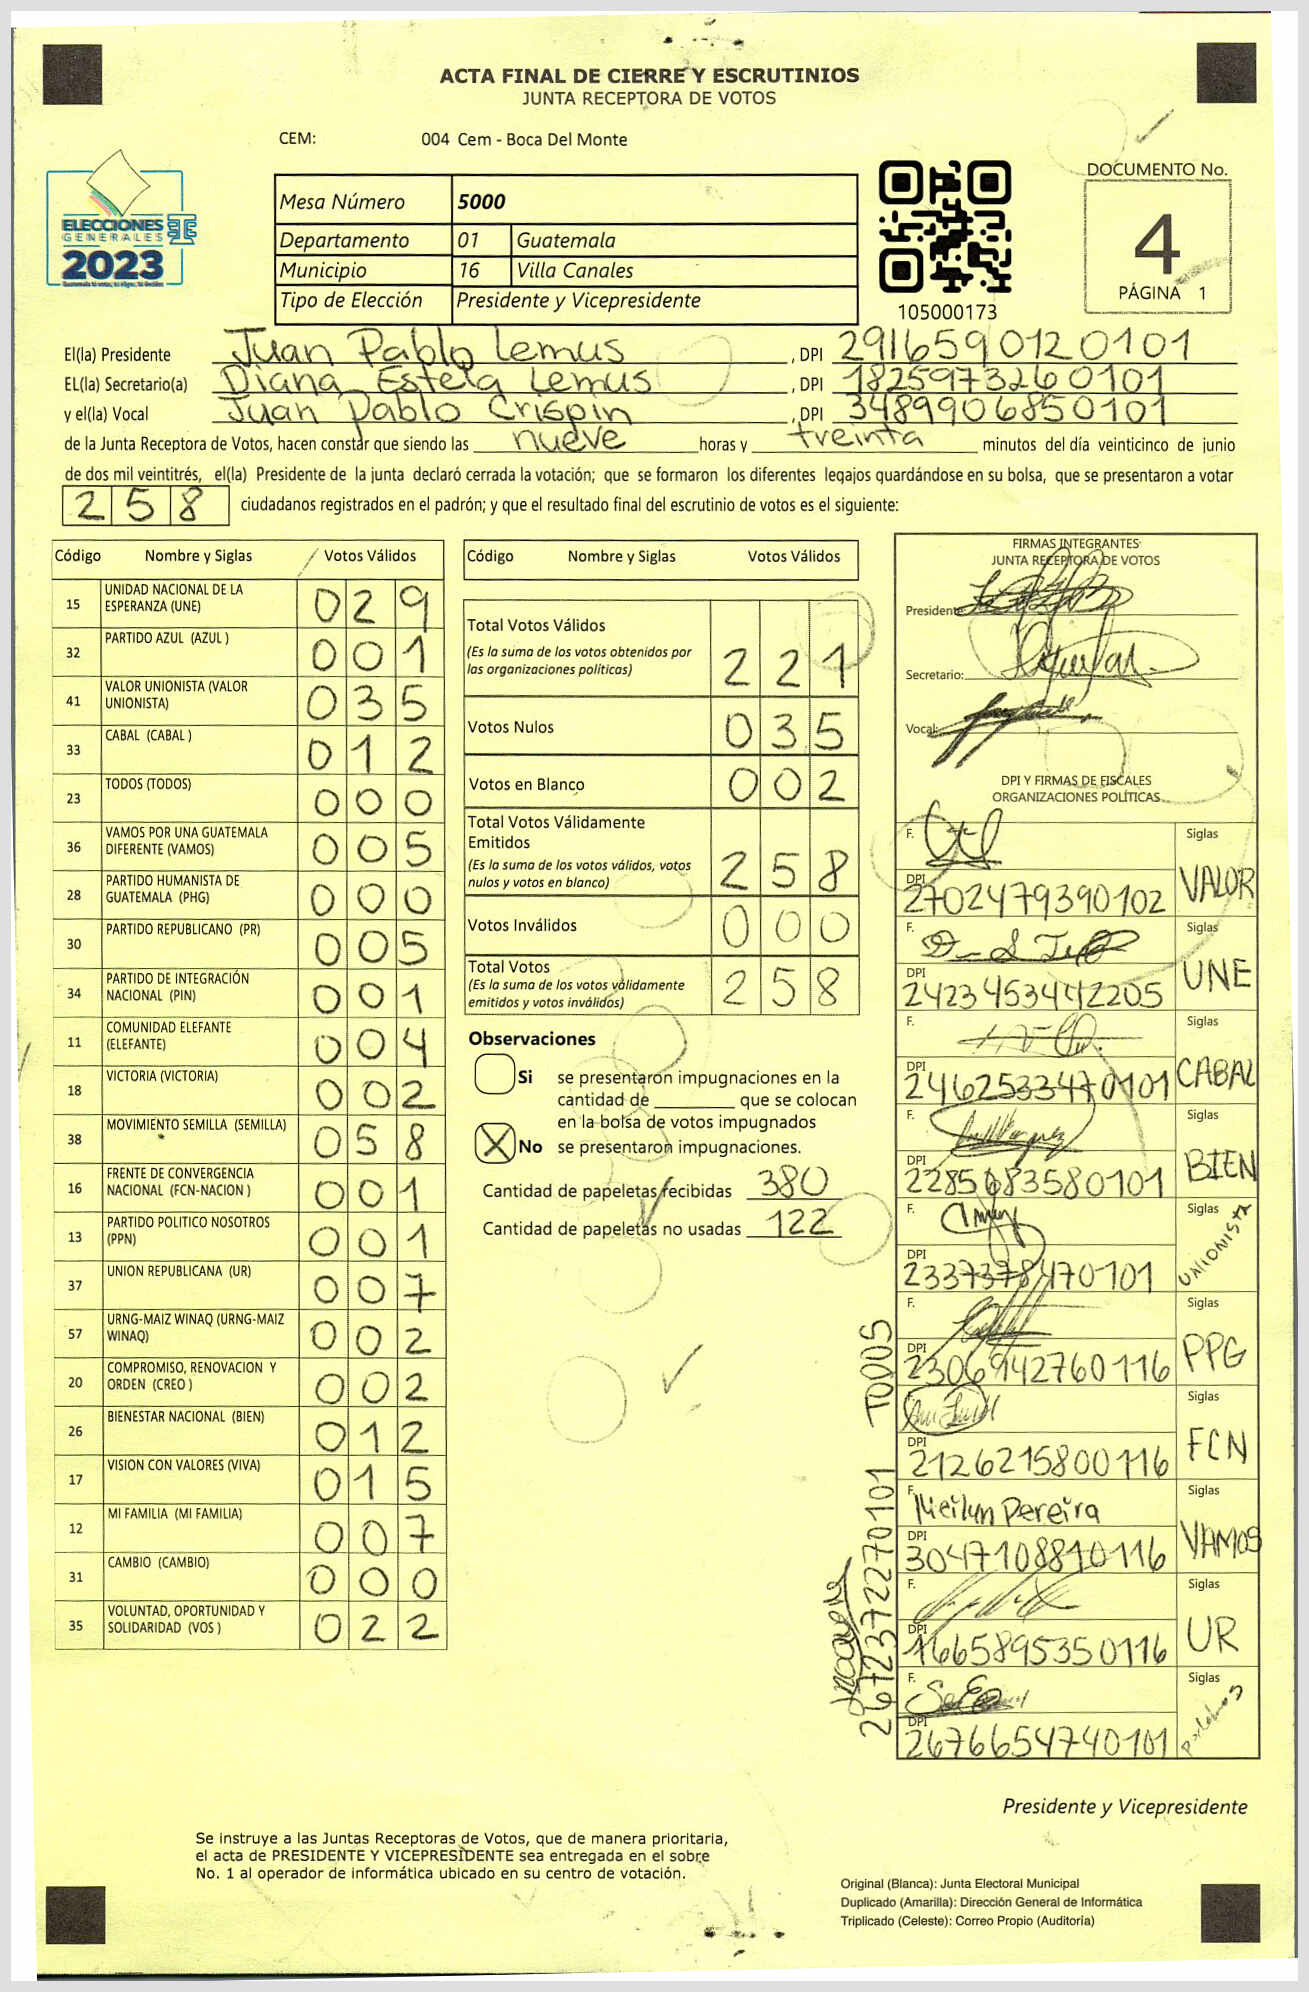 ACTA FINAL DE CIERRE Y ESCRUTINIOS
JUNTA RECEPTORA DE VOTOS
CEM: 004 Cem - Boca Del Monte
ELECCIONES
GENERALES
2023
Mesa Número 5000
Departamento 01 Guatemala
Municipio 16 Villa Canales
Tipo de Elección Presidente y Vicepresidente
105000173
DOCUMENTO No.
4
PÁGINA 1
El(la) Presidente Juan Pablo Lemus , DPI 2916590120101
EL(la) Secretario(a) Diana Estela Lemus , DPI 1825973260101
y el(la) Vocal Juan Pablo Crispin , DPI 3489906850101
de la Junta Receptora de Votos, hacen constar que siendo las nueve horas y treinta minutos del día veinticinco de junio
de dos mil veintitrés, el(la) Presidente de la junta declaró cerrada la votación; que se formaron los diferentes legajos guardándose en su bolsa, que se presentaron a votar
258 ciudadanos registrados en el padrón; y que el resultado final del escrutinio de votos es el siguiente:
Código Nombre y Siglas Votos Válidos
15 UNIDAD NACIONAL DE LA ESPERANZA (UNE) 029
32 PARTIDO AZUL (AZUL ) 001
41 VALOR UNIONISTA (VALOR UNIONISTA) 035
33 CABAL (CABAL ) 012
23 TODOS (TODOS) 000
36 VAMOS POR UNA GUATEMALA DIFERENTE (VAMOS) 005
28 PARTIDO HUMANISTA DE GUATEMALA (PHG) 000
30 PARTIDO REPUBLICANO (PR) 005
34 PARTIDO DE INTEGRACIÓN NACIONAL (PIN) 001
11 COMUNIDAD ELEFANTE (ELEFANTE) 004
18 VICTORIA (VICTORIA) 002
38 MOVIMIENTO SEMILLA (SEMILLA) 058
16 FRENTE DE CONVERGENCIA NACIONAL (FCN-NACION ) 001
13 PARTIDO POLITICO NOSOTROS (PPN) 001
37 UNION REPUBLICANA (UR) 007
57 URNG-MAIZ WINAQ (URNG-MAIZ WINAQ) 002
20 COMPROMISO, RENOVACION Y ORDEN (CREO ) 002
26 BIENESTAR NACIONAL (BIEN) 012
17 VISION CON VALORES (VIVA) 015
12 MI FAMILIA (MI FAMILIA) 007
31 CAMBIO (CAMBIO) 000
35 VOLUNTAD, OPORTUNIDAD Y SOLIDARIDAD (VOS ) 022
Código Nombre y Siglas Votos Válidos
Total Votos Válidos 221
(Es la suma de los votos obtenidos por
las organizaciones políticas)
Votos Nulos 035
Votos en Blanco 002
Total Votos Válidamente
Emitidos 258
(Es la suma de los votos válidos, votos
nulos y votos en blanco)
Votos Inválidos 000
Total Votos 258
(Es la suma de los votos válidamente
emitidos y votos inválidos)
Observaciones
Si se presentaron impugnaciones en la
cantidad de ________ que se colocan
en la bolsa de votos impugnados
X No se presentaron impugnaciones.
Cantidad de papeletas recibidas 380
Cantidad de papeletas no usadas 122
FIRMAS INTEGRANTES
JUNTA RECEPTORA DE VOTOS
Presidente:
Secretario:
Vocal:
DPI Y FIRMAS DE FISCALES
ORGANIZACIONES POLÍTICAS
F. Siglas
DPI 2702479390102 VALOR
F. Siglas
DPI 2423453442205 UNE
F. Siglas
DPI 2462533470101 CABAL
F. Siglas
DPI 2285683580101 BIEN
F. Siglas
DPI 2337378470101 UNIONISTA
F. Siglas
DPI 2306942760116 PPG
F. Siglas
DPI 2126215800116 FCN
F. Meilyn Pereira Siglas
DPI 3047108810116 VAMOS
F. Siglas
DPI 1665895350116 UR
F. Siglas
DPI 2676654740101
2672372270101 TODOS
Presidente y Vicepresidente
Se instruye a las Juntas Receptoras de Votos, que de manera prioritaria,
el acta de PRESIDENTE Y VICEPRESIDENTE sea entregada en el sobre
No. 1 al operador de informática ubicado en su centro de votación.
Original (Blanca): Junta Electoral Municipal
Duplicado (Amarilla): Dirección General de Informática
Triplicado (Celeste): Correo Propio (Auditoría)